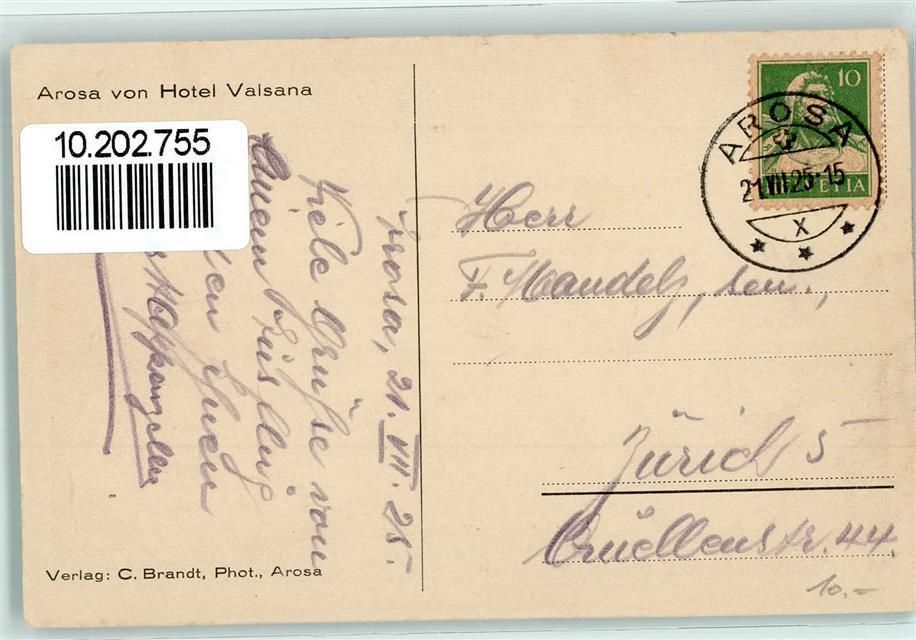 Arosa von Hotel Valsana
10.202.755
10
HELVETIA
AROSA
21.VII.25-15
X
Arosa, 21. VII. 25.
Viele Grüße von
einem Ausflug
Ihnen
Herr
F. Mandel, sen.,
Zürich 5
Quellenstr. 44.
Verlag: C. Brandt, Phot., Arosa
10.-